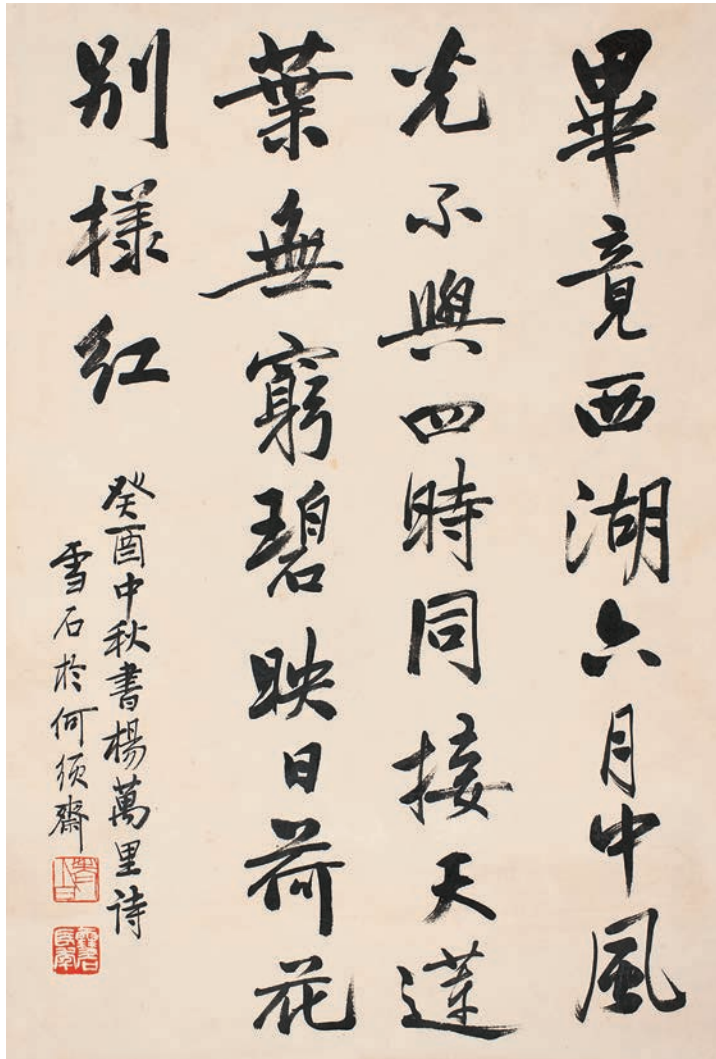 畢竟西湖六月中風
光不與四時同接天蓮
葉無窮碧映日荷花
別樣红
癸酉中秋書楊萬里诗
雪石於何須齋